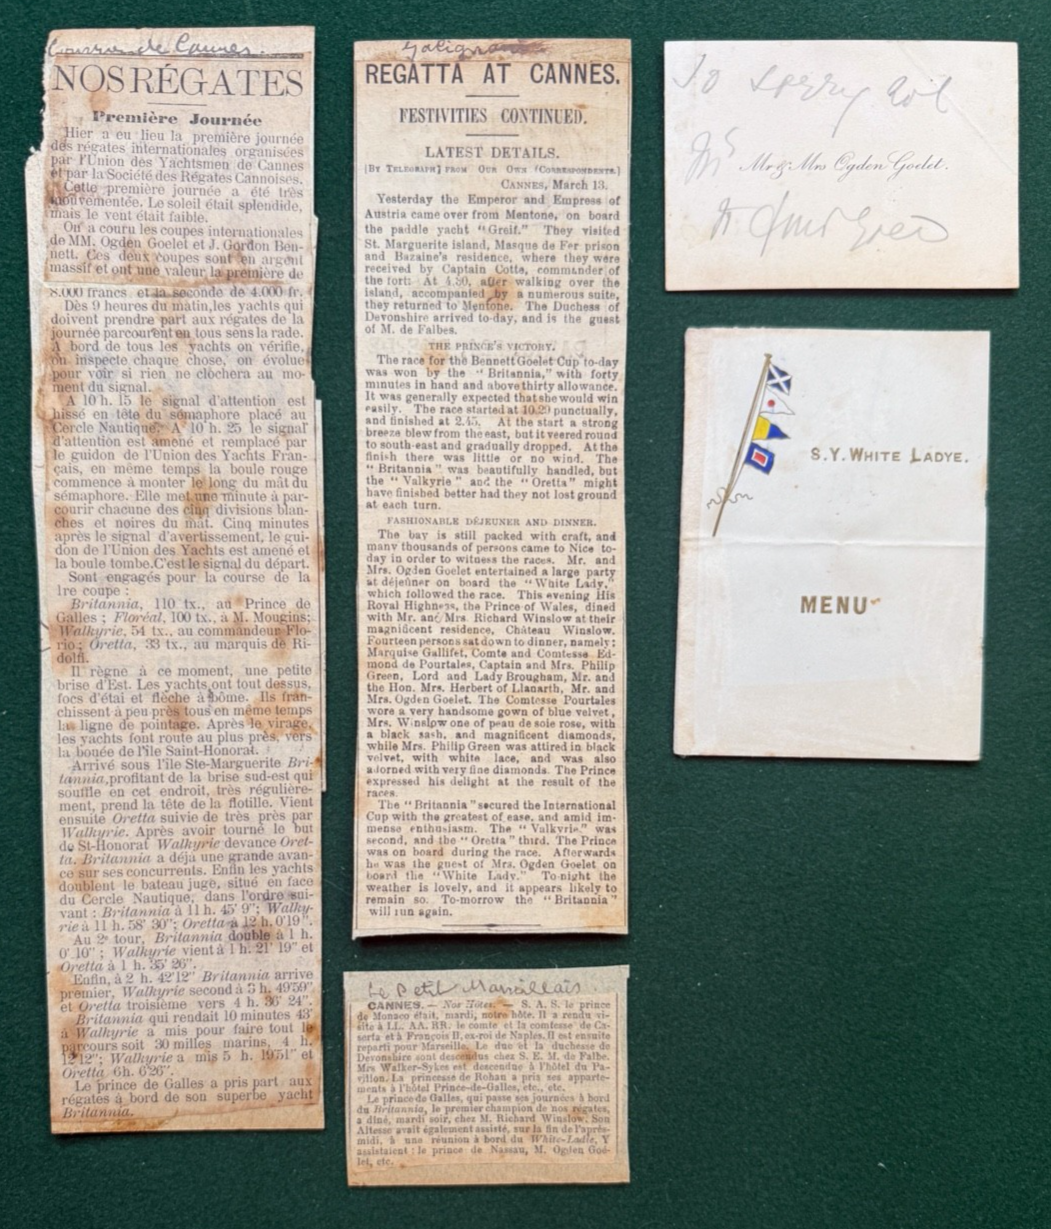 Courrier de Cannes.
NOS RÉGATES
Première Journée
Hier a eu lieu la première journée
des régates internationales organisées
par l'Union des Yachtsmen de Cannes
et par la Société des Régates Cannoises.
Cette première journée a été très
mouvementée. Le soleil était splendide,
mais le vent était faible.
On a couru les coupes internationales
de MM. Ogden Goelet et J. Gordon Ben-
nett. Ces deux coupes sont en argent
massif et ont une valeur la première de
8.000 francs et la seconde de 4.000 fr.
Dès 9 heures du matin, les yachts qui
doivent prendre part aux régates de la
journée parcourent en tous sens la rade.
A bord de tous les yachts on vérifie,
on inspecte chaque chose, on évolue
pour voir si rien ne clòchera au mo-
ment du signal.
A 10 h. 15 le signal d'attention est
hissé en tête du sémaphore placé au
Cercle Nautique. A 10 h. 25 le signal
d'attention est amené et remplacé par
le guidon de l'Union des Yachts Fran-
çais, en même temps la boule rouge
commence à monter le long du mât du
sémaphore. Elle met une minute à par-
courir chacune des cinq divisions blan-
ches et noires du mât. Cinq minutes
après le signal d'avertissement, le gui-
don de l'Union des Yachts est amené et
la boule tombe. C'est le signal du départ.
Sont engagés pour la course de la
1re coupe :
Britannia, 110 tx., au Prince de
Galles ; Floréal, 100 tx., à M. Mougins;
Walkyrie, 54 tx., au commandeur Flo-
rio ; Oretta, 33 tx., au marquis de Ri-
dolfi.
Il règne à ce moment, une petite
brise d'Est. Les yachts ont tout dessus,
focs d'étai et flèche à bôme. Ils fran-
chissent à peu près tous en même temps
la ligne de pointage. Après le virage,
les yachts font route au plus près, vers
la bouée de l'île Saint-Honorat.
Arrivé sous l'île Ste-Marguerite Bri-
tannia, profitant de la brise sud-est qui
souffle en cet endroit, très régulière-
ment, prend la tête de la flotille. Vient
ensuite Oretta suivie de très près par
Walkyrie. Après avoir tourné le but
de St-Honorat Walkyrie devance Oret-
ta. Britannia a déjà une grande avan-
ce sur ses concurrents. Enfin les yachts
doublent le bateau juge, situé en face
du Cercle Nautique, dans l'ordre sui-
vant : Britannia à 11 h. 45' 9"; Walky-
rie à 11 h. 58' 30"; Oretta à 12 h. 0'19".
Au 2e tour, Britannia double à 1 h.
0' 10" ; Walkyrie vient à 1 h. 21' 19" et
Oretta à 1 h. 35' 26".
Enfin, à 2 h. 42'12" Britannia arrive
premier, Walkyrie second à 3 h. 49'59"
et Oretta troisième vers 4 h. 36' 24".
Britannia qui rendait 10 minutes 43'
à Walkyrie a mis pour faire tout le
parcours soit 30 milles marins, 4 h.
12'12"; Walkyrie a mis 5 h. 19'51" et
Oretta 6h. 6'26".
Le prince de Galles a pris part aux
régates à bord de son superbe yacht
Britannia.
REGATTA AT CANNES.
FESTIVITIES CONTINUED.
LATEST DETAILS.
[BY TELEGRAPH] FROM OUR OWN (CORRESPONDENTS.]
CANNES, March 13.
Yesterday the Emperor and Empress of
Austria came over from Mentone, on board
the paddle yacht "Greif." They visited
St. Marguerite island, Masque de Fer prison
and Bazaine's residence, where they were
received by Captain Cotte, commander of
the fort. At 4.30, after walking over the
island, accompanied by a numerous suite,
they returned to Mentone. The Duchess of
Devonshire arrived to-day, and is the guest
of M. de Falbes.
THE PRINCE'S VICTORY.
The race for the Bennett Goelet Cup to-day
was won by the "Britannia," with forty
minutes in hand and above thirty allowance.
It was generally expected that she would win
easily. The race started at 10.29 punctually,
and finished at 2.45. At the start a strong
breeze blew from the east, but it veered round
to south-east and gradually dropped. At the
finish there was little or no wind. The
"Britannia" was beautifully handled, but
the "Valkyrie" and the "Oretta" might
have finished better had they not lost ground
at each turn.
FASHIONABLE DÉJEUNER AND DINNER.
The bay is still packed with craft, and
many thousands of persons came to Nice to-
day in order to witness the races. Mr. and
Mrs. Ogden Goelet entertained a large party
at déjeûner on board the "White Lady,"
which followed the race. This evening His
Royal Highness, the Prince of Wales, dined
with Mr. and Mrs. Richard Winslow at their
magnificent residence, Château Winslow.
Fourteen persons sat down to dinner, namely;
Marquise Gallifet, Comte and Comtesse Ed-
mond de Pourtales, Captain and Mrs. Philip
Green, Lord and Lady Brougham, Mr. and
the Hon. Mrs. Herbert of Llanarth, Mr. and
Mrs. Ogden Goelet. The Comtesse Pourtales
wore a very handsome gown of blue velvet,
Mrs. Winslow one of peau de soie rose, with
a black sash, and magnificent diamonds,
while Mrs. Philip Green was attired in black
velvet, with white lace, and was also
adorned with very fine diamonds. The Prince
expressed his delight at the result of the
races.
The "Britannia" secured the International
Cup with the greatest of ease, and amid im-
mense enthusiasm. The "Valkyrie" was
second, and the "Oretta" third. The Prince
was on board during the race. Afterwards
he was the guest of Mrs. Ogden Goelet on
board the "White Lady." To-night the
weather is lovely, and it appears likely to
remain so. To-morrow the "Britannia"
will run again.
Le Petit Marseillais.
CANNES. — Nos Hôtes. — S. A. S. le prince
de Monaco était, mardi, notre hôte. Il a rendu vi-
site à LL. AA. RR. le comte et la comtesse de Ca-
serta et à François II, ex-roi de Naples. Il est ensuite
reparti pour Marseille. Le duc et la duchesse de
Devonshire sont descendus chez S. E. M. de Falbe.
Mrs Walker-Sykes est descendue à l'hôtel du Pa-
villon. La princesse de Rohan a pris ses apparte-
ments à l'hôtel Prince-de-Galles, etc., etc.
Le prince de Galles, qui passe ses journées à bord
du Britannia, le premier champion de nos régates,
a dîné, mardi soir, chez M. Richard Winslow. Son
Altesse avait également assisté, sur la fin de l'après-
midi, à une réunion à bord du White-Ladie. Y
assistaient : le prince de Nassau, M. Ogden Goé-
let, etc.
To sorry
Mr & Mrs Ogden Goelet.
S.Y. WHITE LADYE.
MENU